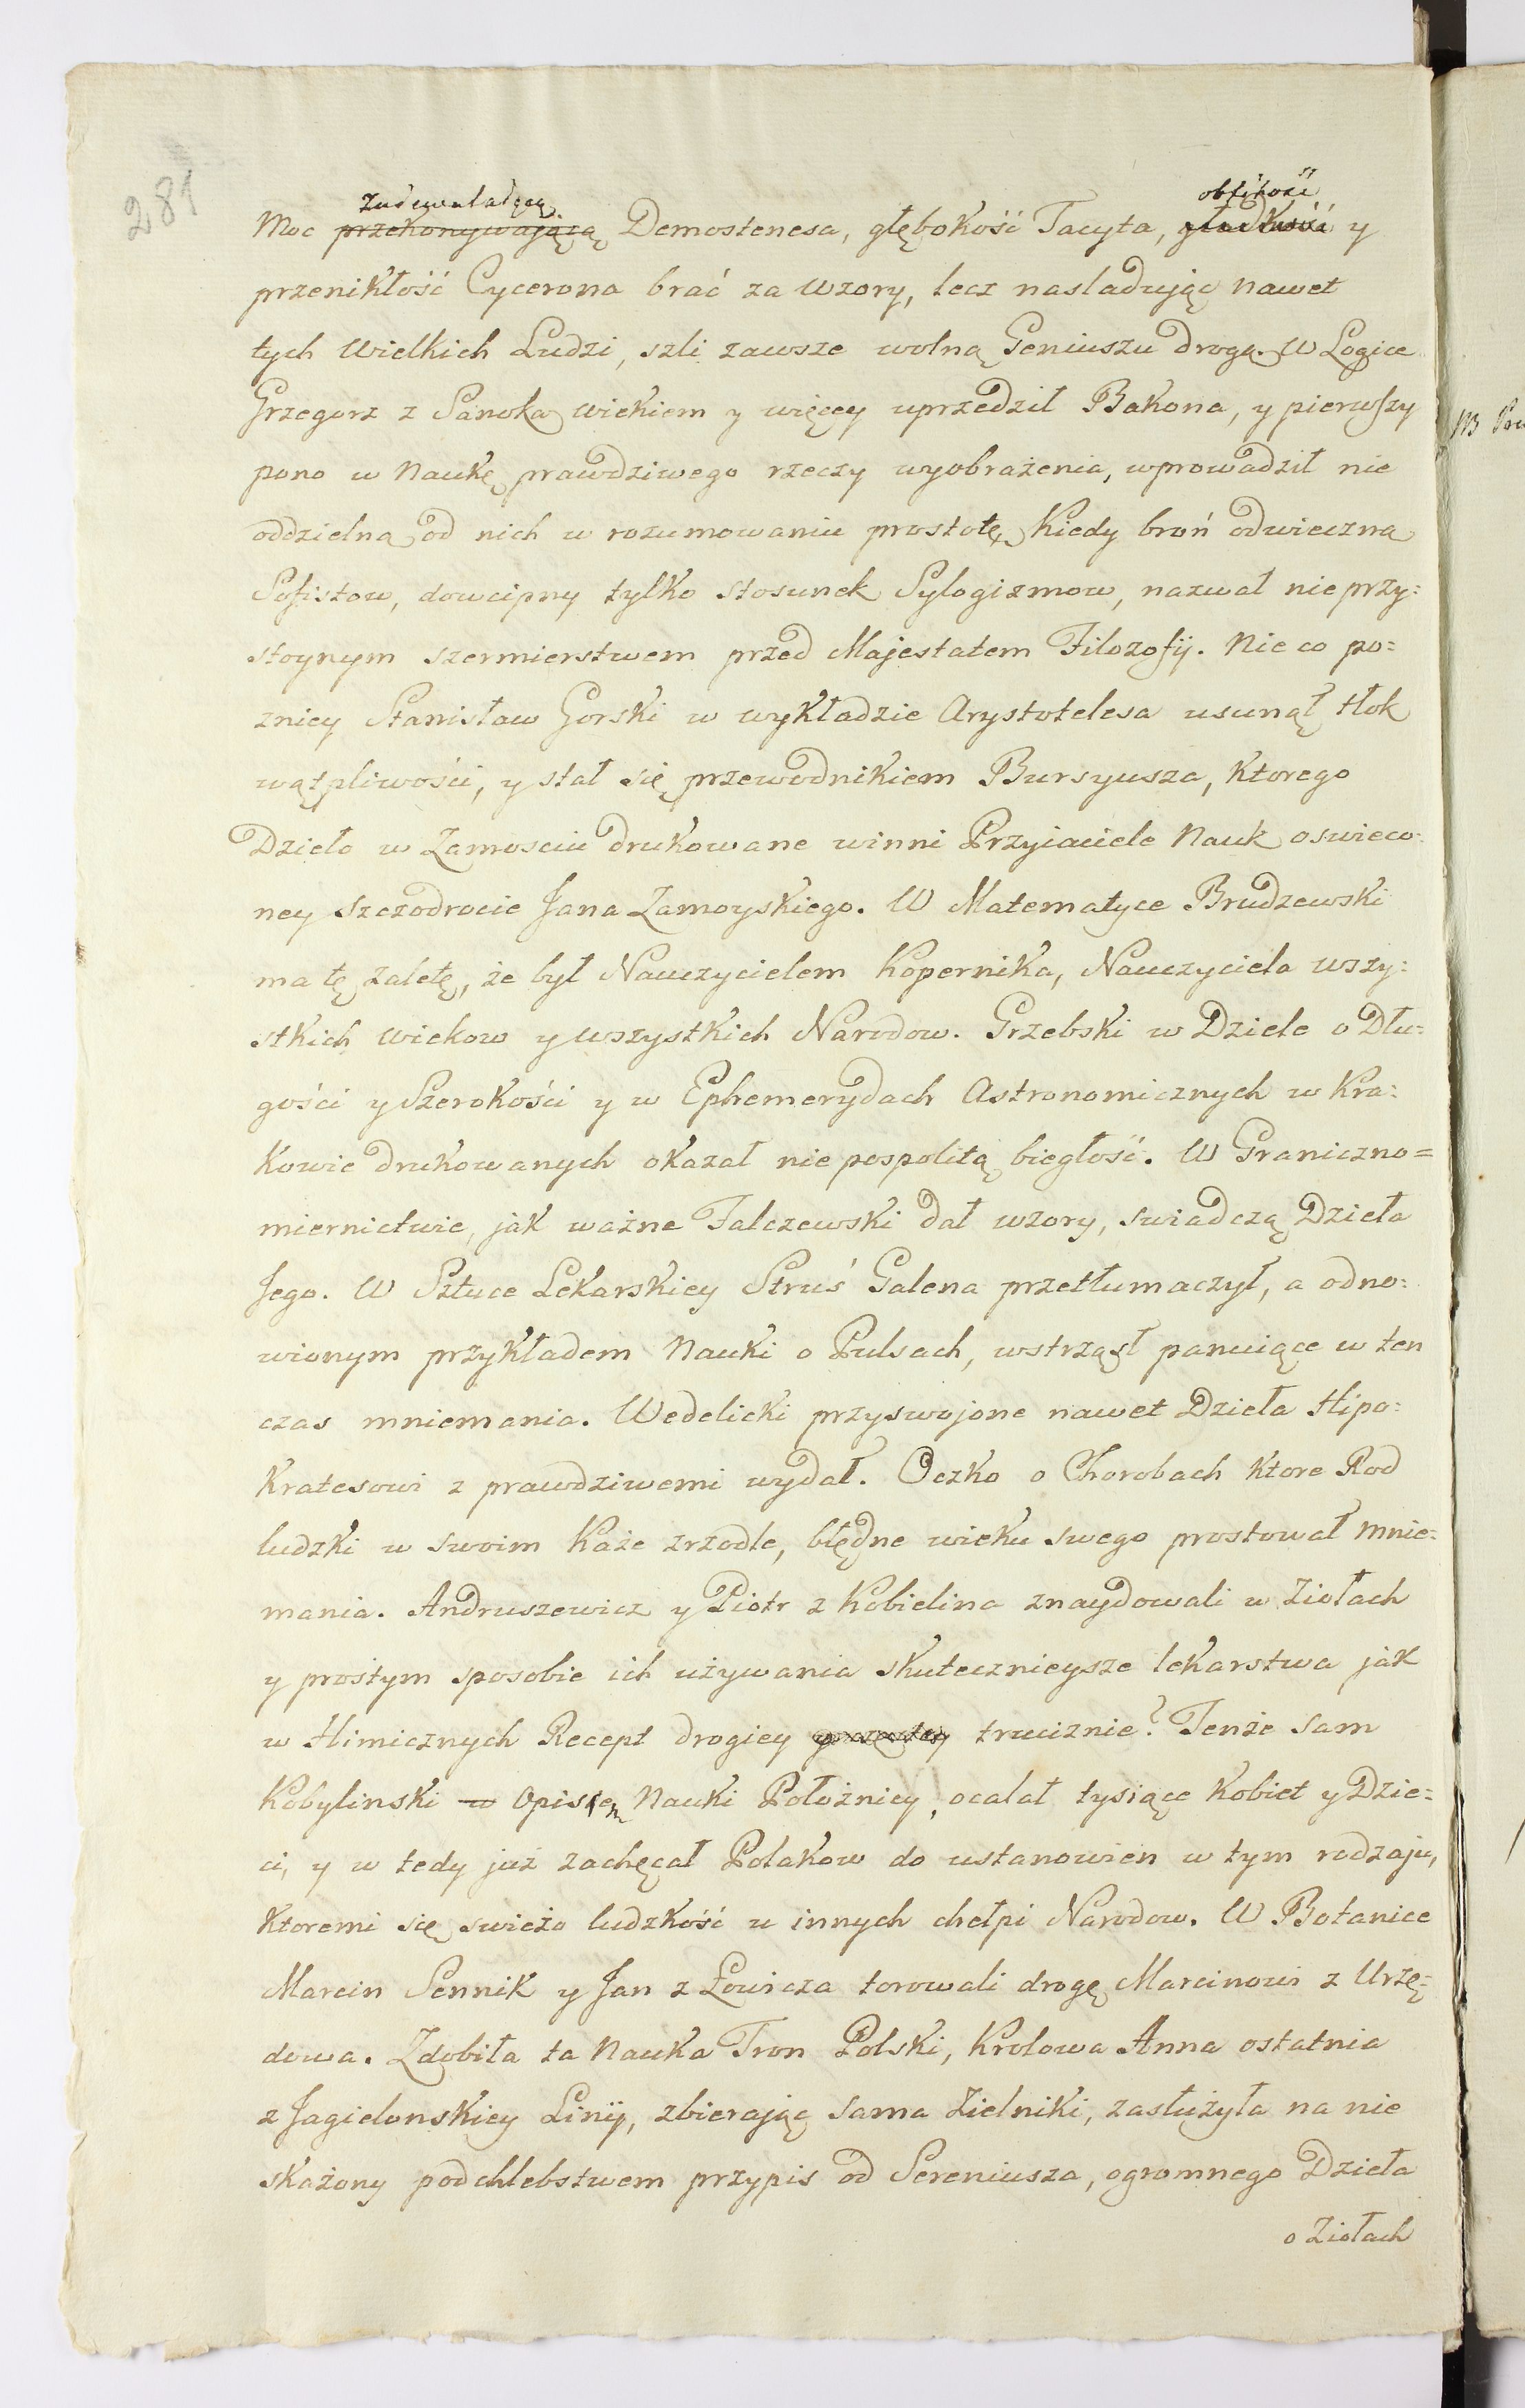 281
zniewalaiącą obfitość
Moc przekonywającą Demostenesa, głębokość Tacyta, gładkość y
przenikłość Cycerona brać za wzory, lecz nasladując nawet
tych Wielkich Ludzi, szli zawsze wolną Geniuszu drogą. W Logice
Grzegorz z Sanoka wiekiem y więcey uprzedził Bakona, y pierwszy
pono w Naukę prawdziwego rzeczy wyobrażenia, wprowadził nie
oddzielną od nich w rozumowaniu prostotę, Kiedy broń odwieczną
Sofistow, dowcipny tylko stosunek Sylogizmow, nazwał nieprzy:
stoynym szermierstwem przed Majestatem Filozofij. Nie co po:
zniey Stanisław Gorski w wykładzie Arystotelesa usunął tłok
wątpliwości, y stał się przewodnikiem Bursyusza, Ktorego
Dzieło w Zamosciu drukowane winni Przyiaciele Nauk oswieco:
ney szczodrocie Jana Zamoyskiego. W Matematyce Brudzewski
ma tę zaletę, że był Nauczycielem Kopernika, Nauczyciela wszy:
stkich wiekow y wszystkich Narodow. Grzebski w Dziele o Dłu:
gości y Szerokości y w Ephemerydach Astronomicznych w Kra:
kowie drukowanych okazał niepospolitą biegłość. W Graniczno=
miernictwie, jak ważne Falczewski dał wzory, swiadczą Dzieła
Jego. W Sztuce Lekarskiey Struś Galena przetłumaczył, a odno:
wionym przykładem Nauki o Pulsach, wstrząsł panuiące w ten
czas mniemania. Wedelicki przyswojone nawet Dzieła Hipo:
kratesowi z prawdziwemi wydał. Oczko o Chorobach Ktore Rod
ludzki w swoim Każe zrzodle, błędne wieku swego prostował mnie:
mania. Andruszewicz y Piotr z Kobielina znaydowali w Ziołach
y prostym sposobie ich używania skutecznieysze lekarstwa jak
w Himicznych Recept drogiey truciznie? Tenże sam
Kobylinski w Opisem Nauki Położniey, ocalał tysiące Kobiet y Dzie:
ci, y w tedy już zachęcał Polakow do ustanowien w tym rodzaju,
Ktoremi się swieżo ludzkość u innych chełpi Narodow. W Botanice
Marcin Sennik y Jan z Łowicza torowali drogę Marcinowi z Urzę:
dowa. Zdobiła ta Nauka Tron Polski, Krolowa Anna ostatnia
z Jagielonskiey Linij, zbierając sama Zielniki, zasłużyła na nie
skażony podchlebstwem przypis od Sereniusza, ogromnego Dzieła
o Ziołach